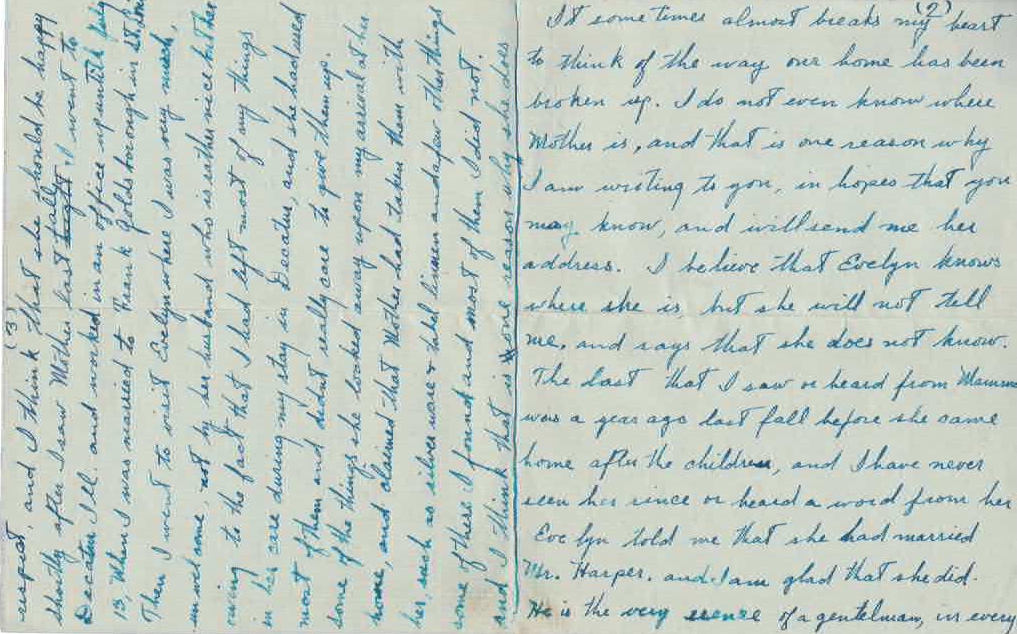 (2)
It some times almost breaks my heart
to think of the way our home has been
broken up. I do not even know where
Mother is, and that is one reason why
I am writing to you, in hopes that you
may know, and will send me her
address. I believe that Evelyn knows
where she is but she will not tell
me, and says that she does not know.
The last that I saw or heard from Mamma
was a year ago last fall before she came
home after the children, and I have never
seen her since or heard a word from her
Evelyn told me that she had married
Mr. Harper. and I am glad that she did.
He is the very essence of a gentelman, in every
(3)
respect, and I think that she should be happy
shortly after I saw Mother last fall I went to
Decatur Ill. and worked in an office up untill July
13, When I was married to Frank Goldsborough in St.
Then I went to visit Evelyn where I was very much
unwelcome, not by her husband who is rather nice but her
owing to the fact that I had left most of my things
in her care during my stay in Decatur, and she had used
most of them and didnt really care to give them up.
some of the things she locked away upon my arrival at her
home, and claimed that Mother had taken them with
her, such as silver ware & table linen and a few other things
some of these I found and most of them I did not.
and I think that is one reason why she does